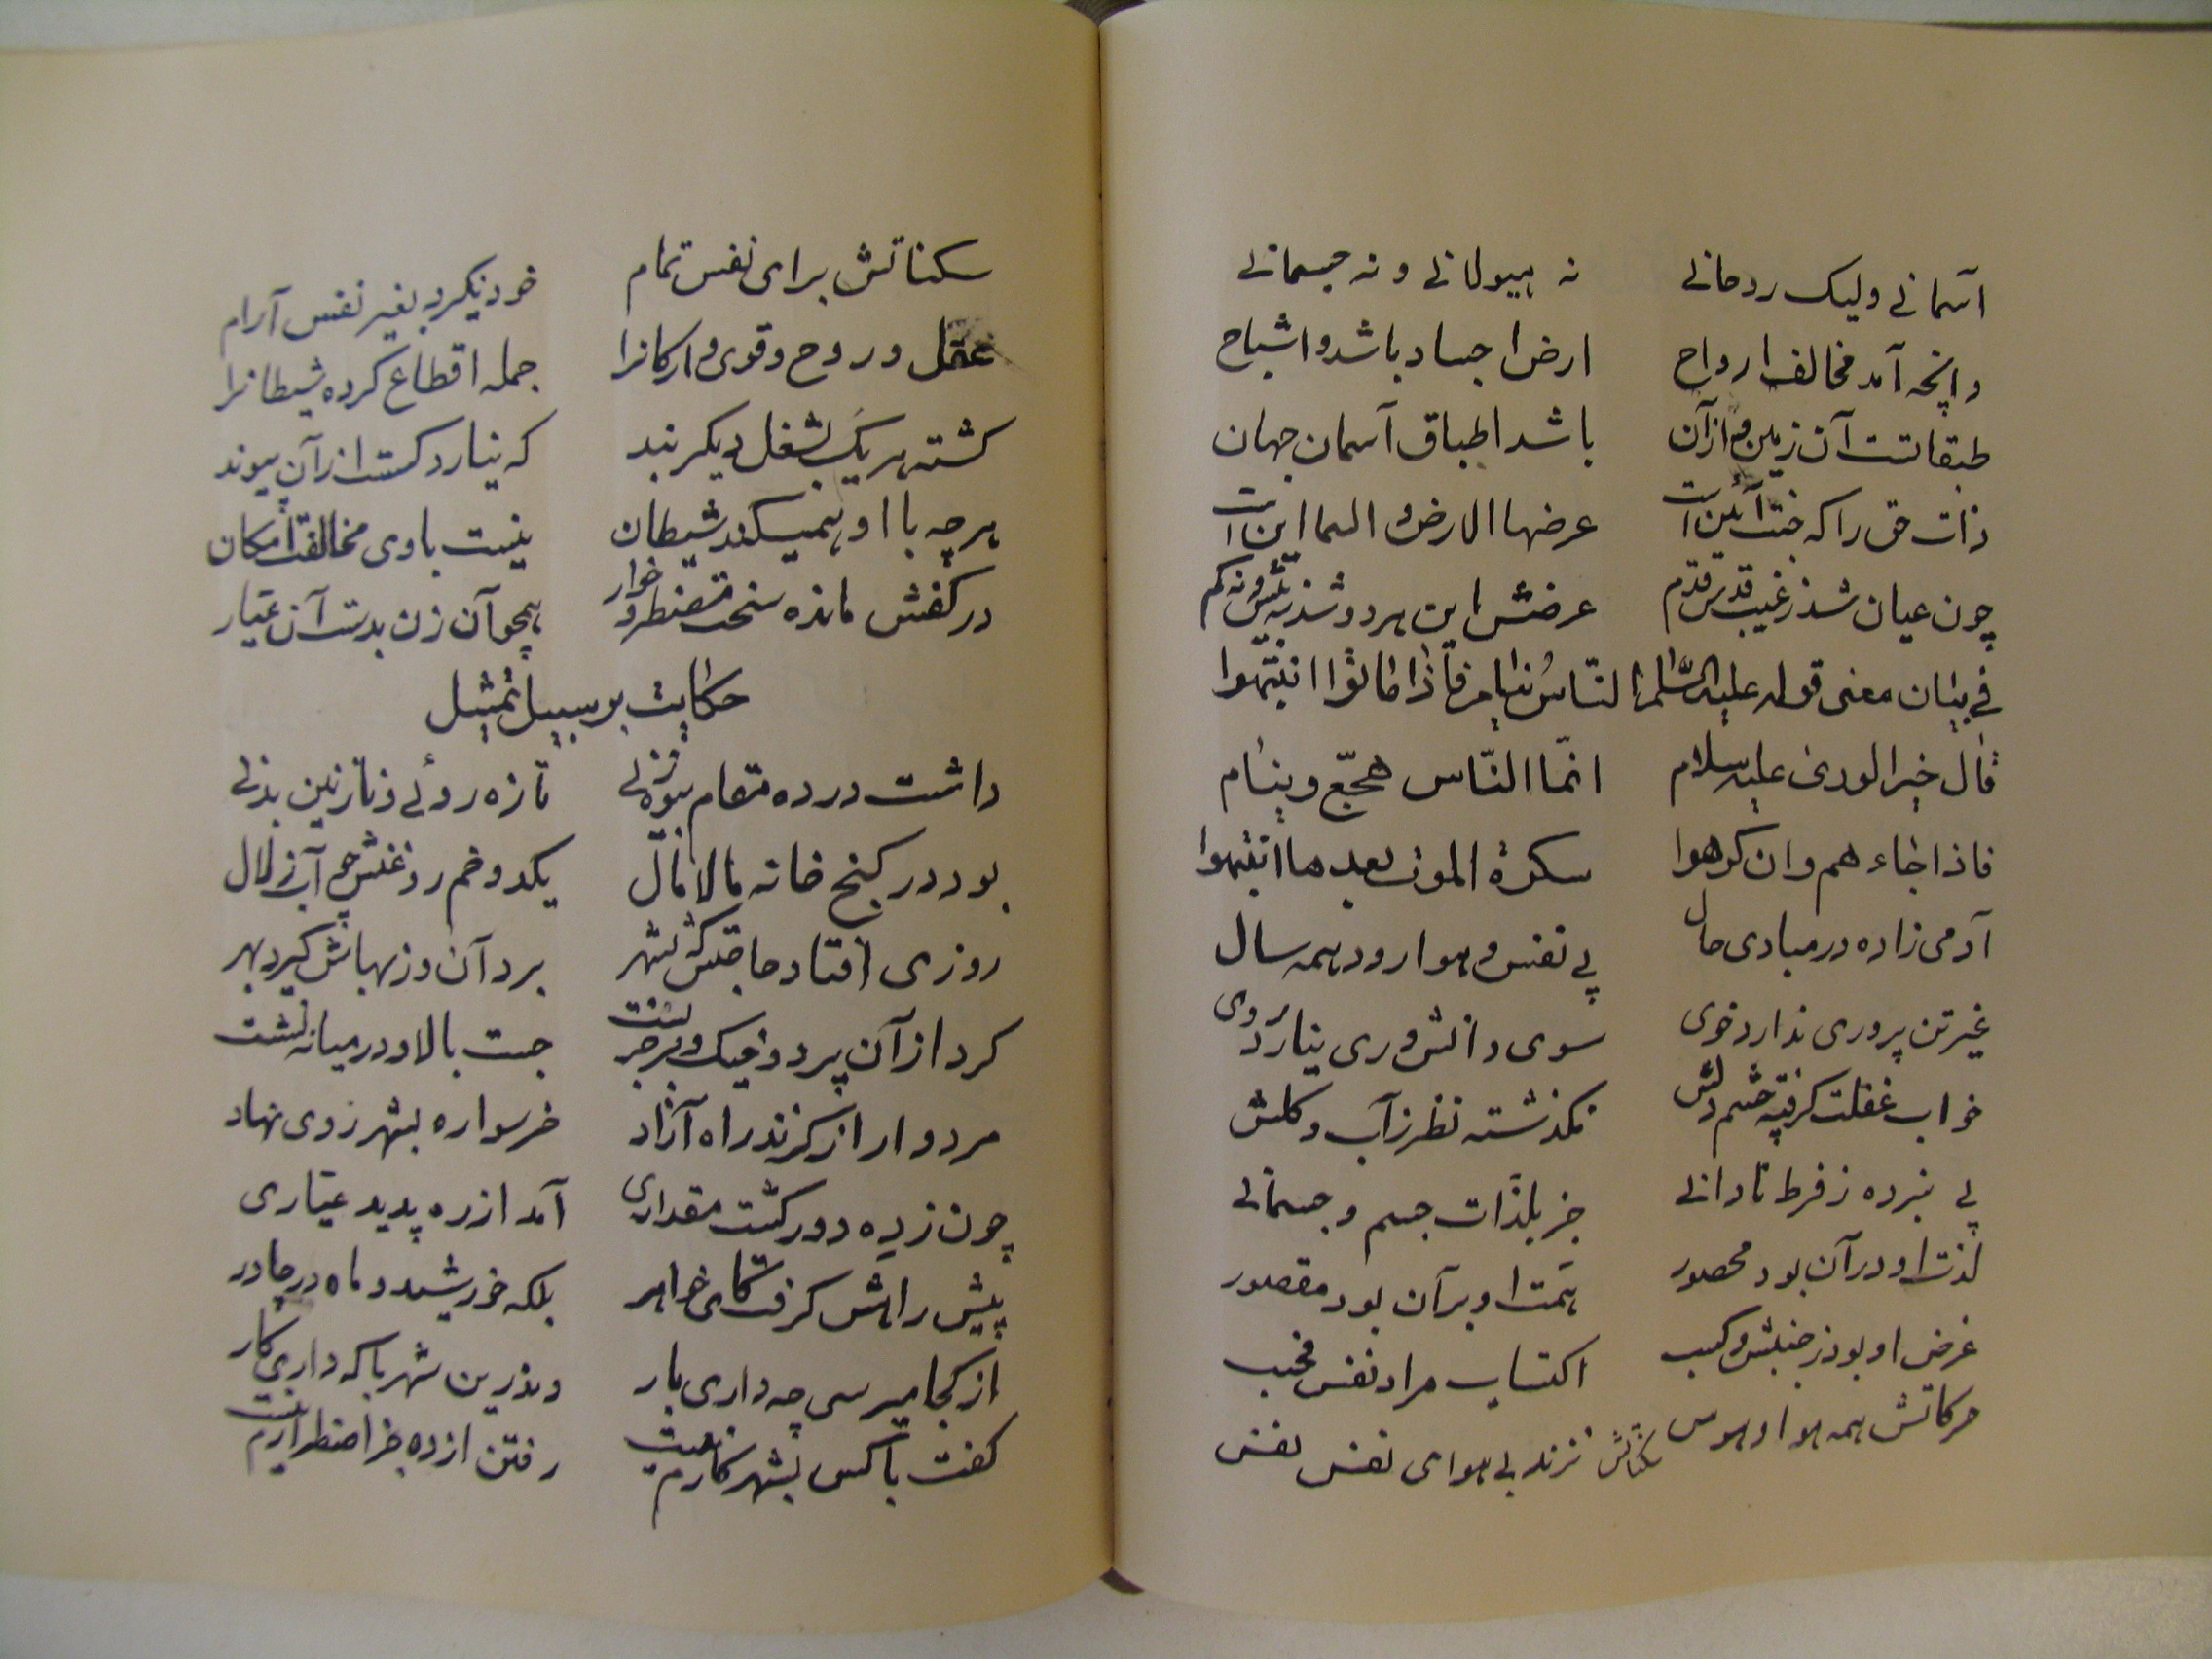 آسمانی ولیک روحانی نه هیولانی و نه جسمانی
وانچه آمد مخالف ارواح ارض اجساد باشد و اشباح
طبقاتست آن زمین و ازآن باشد اطباق آسمان جهان
ذات حق را که جنت آئین است عرضها الارض السما این است
چون عیان شد ز غیب قدس قدم عرضش این هر دو شد نه بیش و نه کم
فی بیان معنی قوله علیه السّلام النّاسُ نیام فاذا ماتوا انتبهوا
قال خیر الوری علیه سلام انّما النّاس هجّع و نیام
فاذا جاءهم وان کرهوا سکرة الموت بعدها انتبهوا
آدمی زاده در مبادی حال پی نفس و هوا رود همه سال
غیر تن پروری ندارد خوی سوی دانشوری نیارد روی
خواب غفلت گرفته چشم دلش نگذشته نظر ز آب و گلش
پی نبرده ز فرط نادانی جز بلذّات جسم و جسمانی
لذت او در آن بود محصور همّت او بر آن بود مقصور
غرض او بود ز جنبش و کسب اکتساب مراد نفس فحسب
حرکاتش همه هوا و هوس نزند بی هوای نفس نفس
سکناتش برای نفس تمام خود نگیرد بغیر نفس آرام
عقل و روح و قوی و ارکانرا جمله اقطاع کرده شیطانرا
گشته هر یک بشغل دیگر بند که نیارد گسست ازآن پیوند
هرچه با او همیکند شیطان نیست با وی مخالفت امکان
در کفش مانده سخت مضطر و خوار همچو آن زن بدست آن عیّار
حکایت بر سبیل تمثیل
داشت در ده مقام بیوه زنی تازه روئی و نازنین بدنی
بود در کنج خانه مالامال یکدو خم روغنش چو آب زلال
روزی افتاد حاجتش که بشهر برد آن و ز بهاش گیرد بهر
کرد از آن پر دو خیک و بر خر بست جست بالا و در میانه نشست
مردوار از گزند راه آزاد خر سواره بشهر روی نهاد
چون ز ده دور گشت مقداری آمد از ره پدید عیّاری
پیش راهش گرفت کای خواهر بلکه خورشید و ماه در چادر
از کجا میرسی چه داری بار وندرین شهر با که داری کار
گفت با کس بشهر کارم نیست رفتن از ده جز اضطرارم نیست